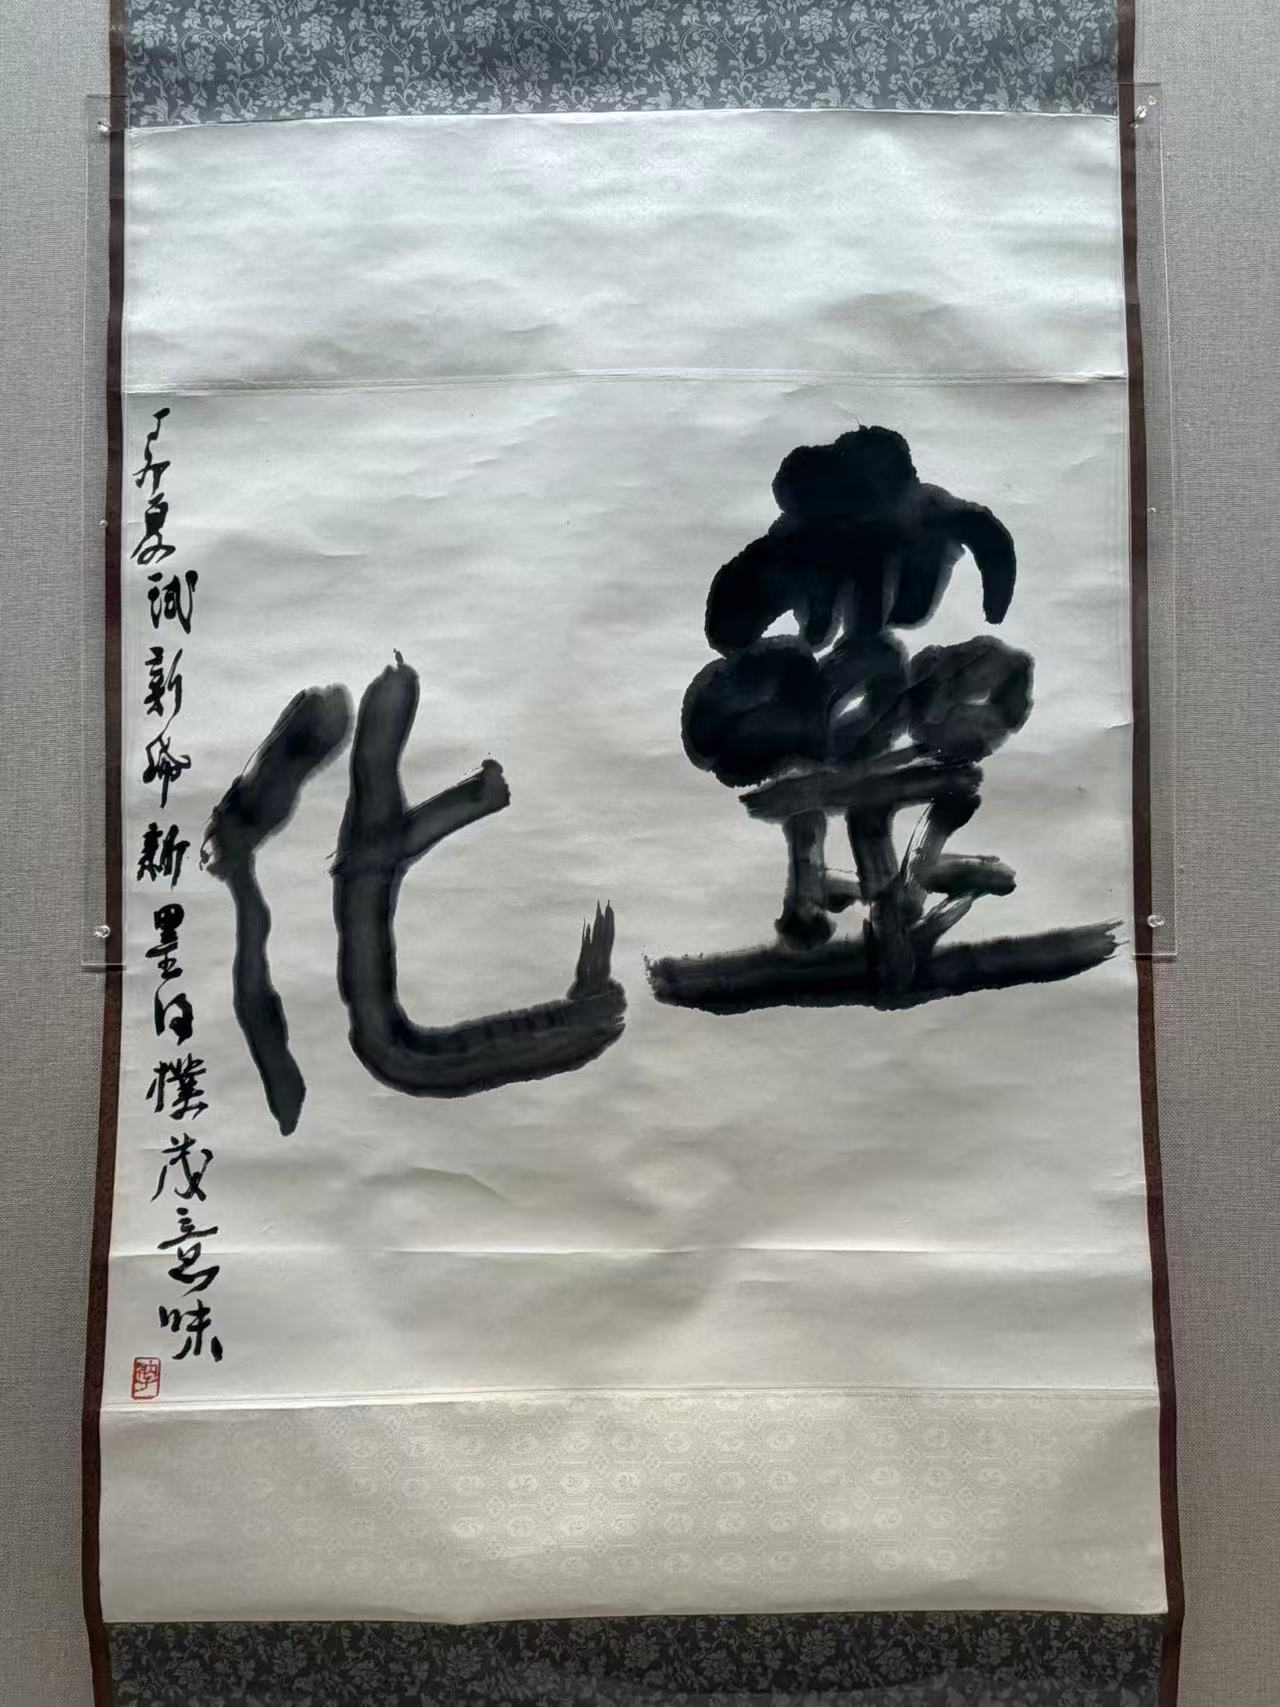 靈化
丁卯夏試新紙新墨得樸茂意味